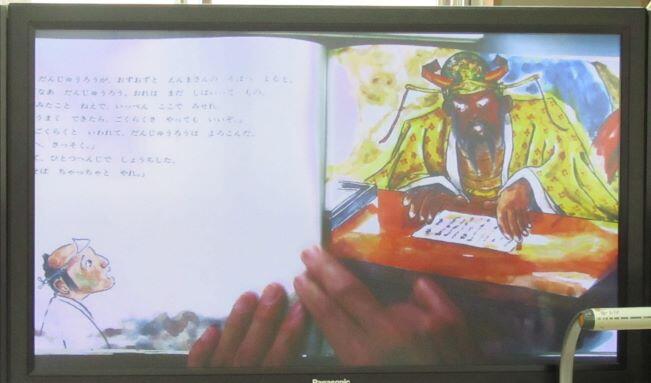 だんじゅうろうが、おずおずと えんまさんの そばへ よると、
なあ だんじゅうろう。おれは まだ しばいって もの、
みたこと ねえで、いっぺん ここで みせれ。
うまく できたら、ごくらくさ やっても いいぞ。」
ごくらくと いわれて、だんじゅうろうは よろこんだ。
へ、さっそく。」
て、ひとつへんじで しょうちした。
ば ちゃっちゃと やれ。」
Panasonic